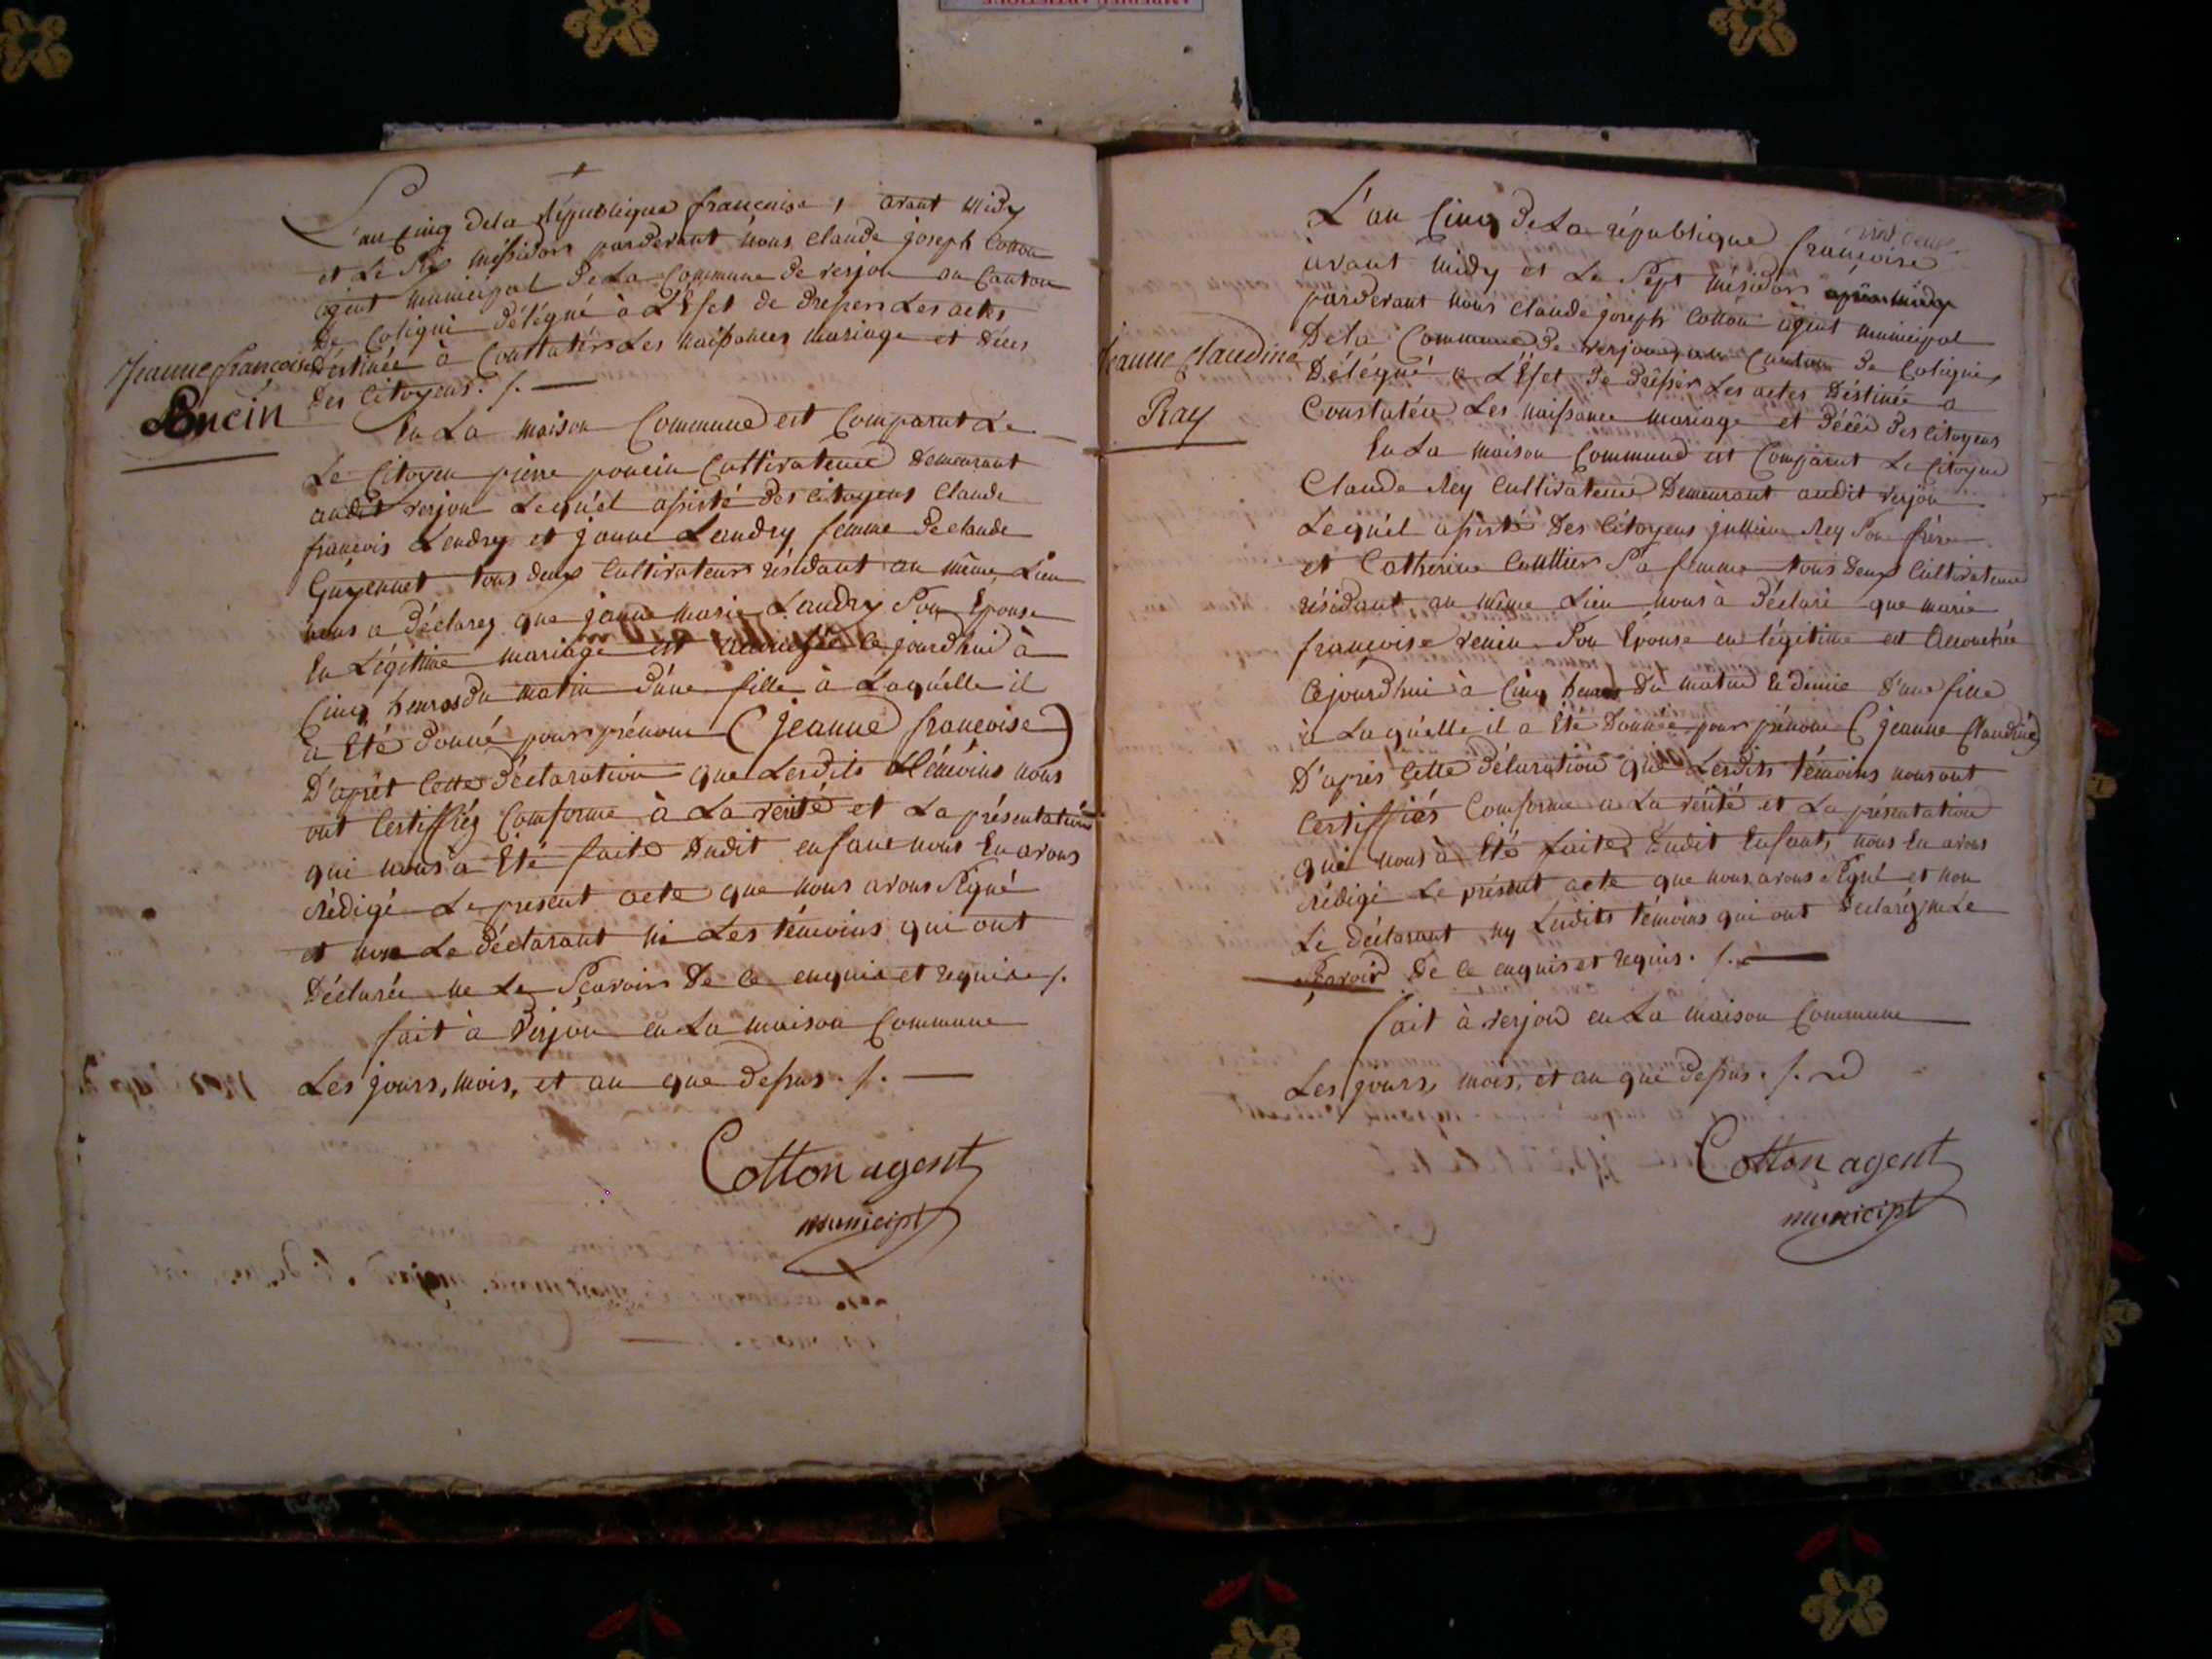 L'an cinq de la République francaise, avant midy
et Le Six méssidor pardevant nous Claude joseph Cotton
agent municipal De La Commune de verjon au Canton
De Coligni Délégué à L'Efet de dresser Les actes
Déstinée à Constatér Les naissances mariage et Déces
Des Citoyens ./. —
Jeanne francoise
Poncin
En La maison Commune est Comparut Le
Le Citoyen pierre poncin Cultivateur Demeurant
audit verjon Lequ'el assisté Des Citoyens Claude
francois Landry et janne Landry femme De claude
Guyennet tous deux Cultivateur résidant au même Lieu
nous a déclarez que janne marie Landry Son Epouse
En Légitime mariage est accouchée ce jourd'hui à
Cinq heures du matin d'une fille à Laqu'elle il
à Eté donné pour prénom (jeanne francoise)
D'aprèt Cette déclaration que Lesdits témoins nous
ont Certiffiéz Comforme à La verité et La présentation
qui nous à Eté faite Dudit enfant nous En avons
rédigé Le present acte que nous avons Signé
et non Le déclarant ni Les témoins qui ont
Déclarée ne Le Scavoir De ce enquis et requise ./.
fait à Verjon en La maison Commune
Les jours, mois, et an que dessus ./. —
Cotton agent
municipl
L'an Cinq De La république francoise
avant midy et Le Sept mésidor
pardevant nous Claude joseph Cotton agent municipal
De la Commune De verjon au Canton De Coligni
Délégué a L'Efet De Drésser Les actes Déstinée a
Constatér Les naissance mariage et Décée des Citoyens
Jeanne Claudine
Ray
En La maison Commune est Comparut Le Citoyen
Claude Rey Cultivateur Demeurant audit verjon
Lequ'el assisté Des Citoyens jullien Rey Son frére
et Catherine Sa femme tous Deux Cultivateur
résidant au même Lieu nous à Déclaré que marie
francoise venin Son Epouse en légitime est accouchée
Cejourd'hui à Cinq heures Du matin Et demie D'une fille
à Laqu'elle il a Eté Donnée pour prénom (jeanne Claudine)
D'aprés Cette déclaration que Lesdits témoins nous ont
Certiffiés Comforme a La vérité et La présentation
qui nous à Eté faite Dudit Enfant, nous En avons
rédigé Le présent acte que nous avons Signé et non
Le déclarant ny Lesdits témoins qui ont Declaréz ne Le
Scavoir De Ce enquis et requis ./. —
fait à verjon en La maison Commune —
Les jours, mois, et an que dessus ./.
Cotton agent
municipl